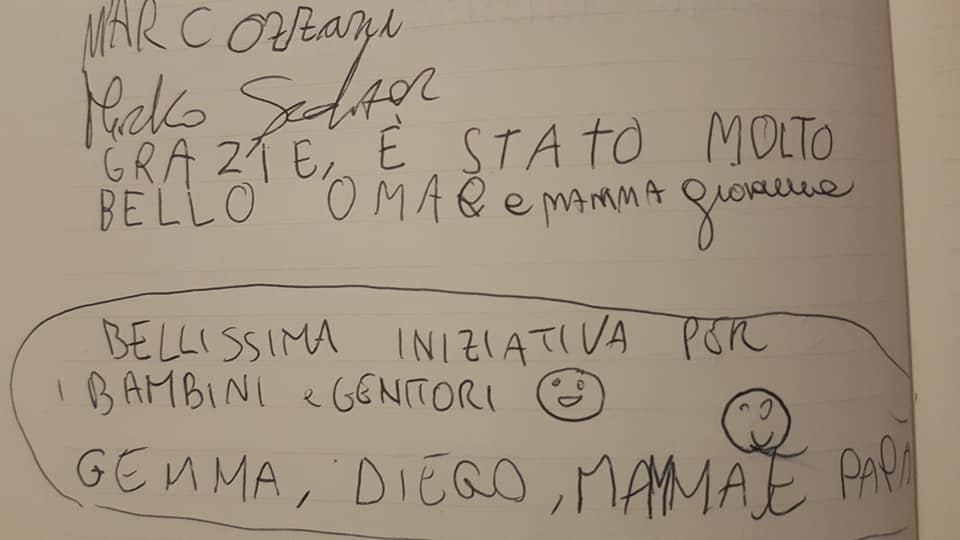 MARCO
Mirko
GRAZIE, È STATO MOLTO
BELLO OMAR e MAMMA giovanna
BELLISSIMA INIZIATIVA PER
i BAMBINI e GENITORI
GEMMA, DIEGO, MAMMA E PAPÀ